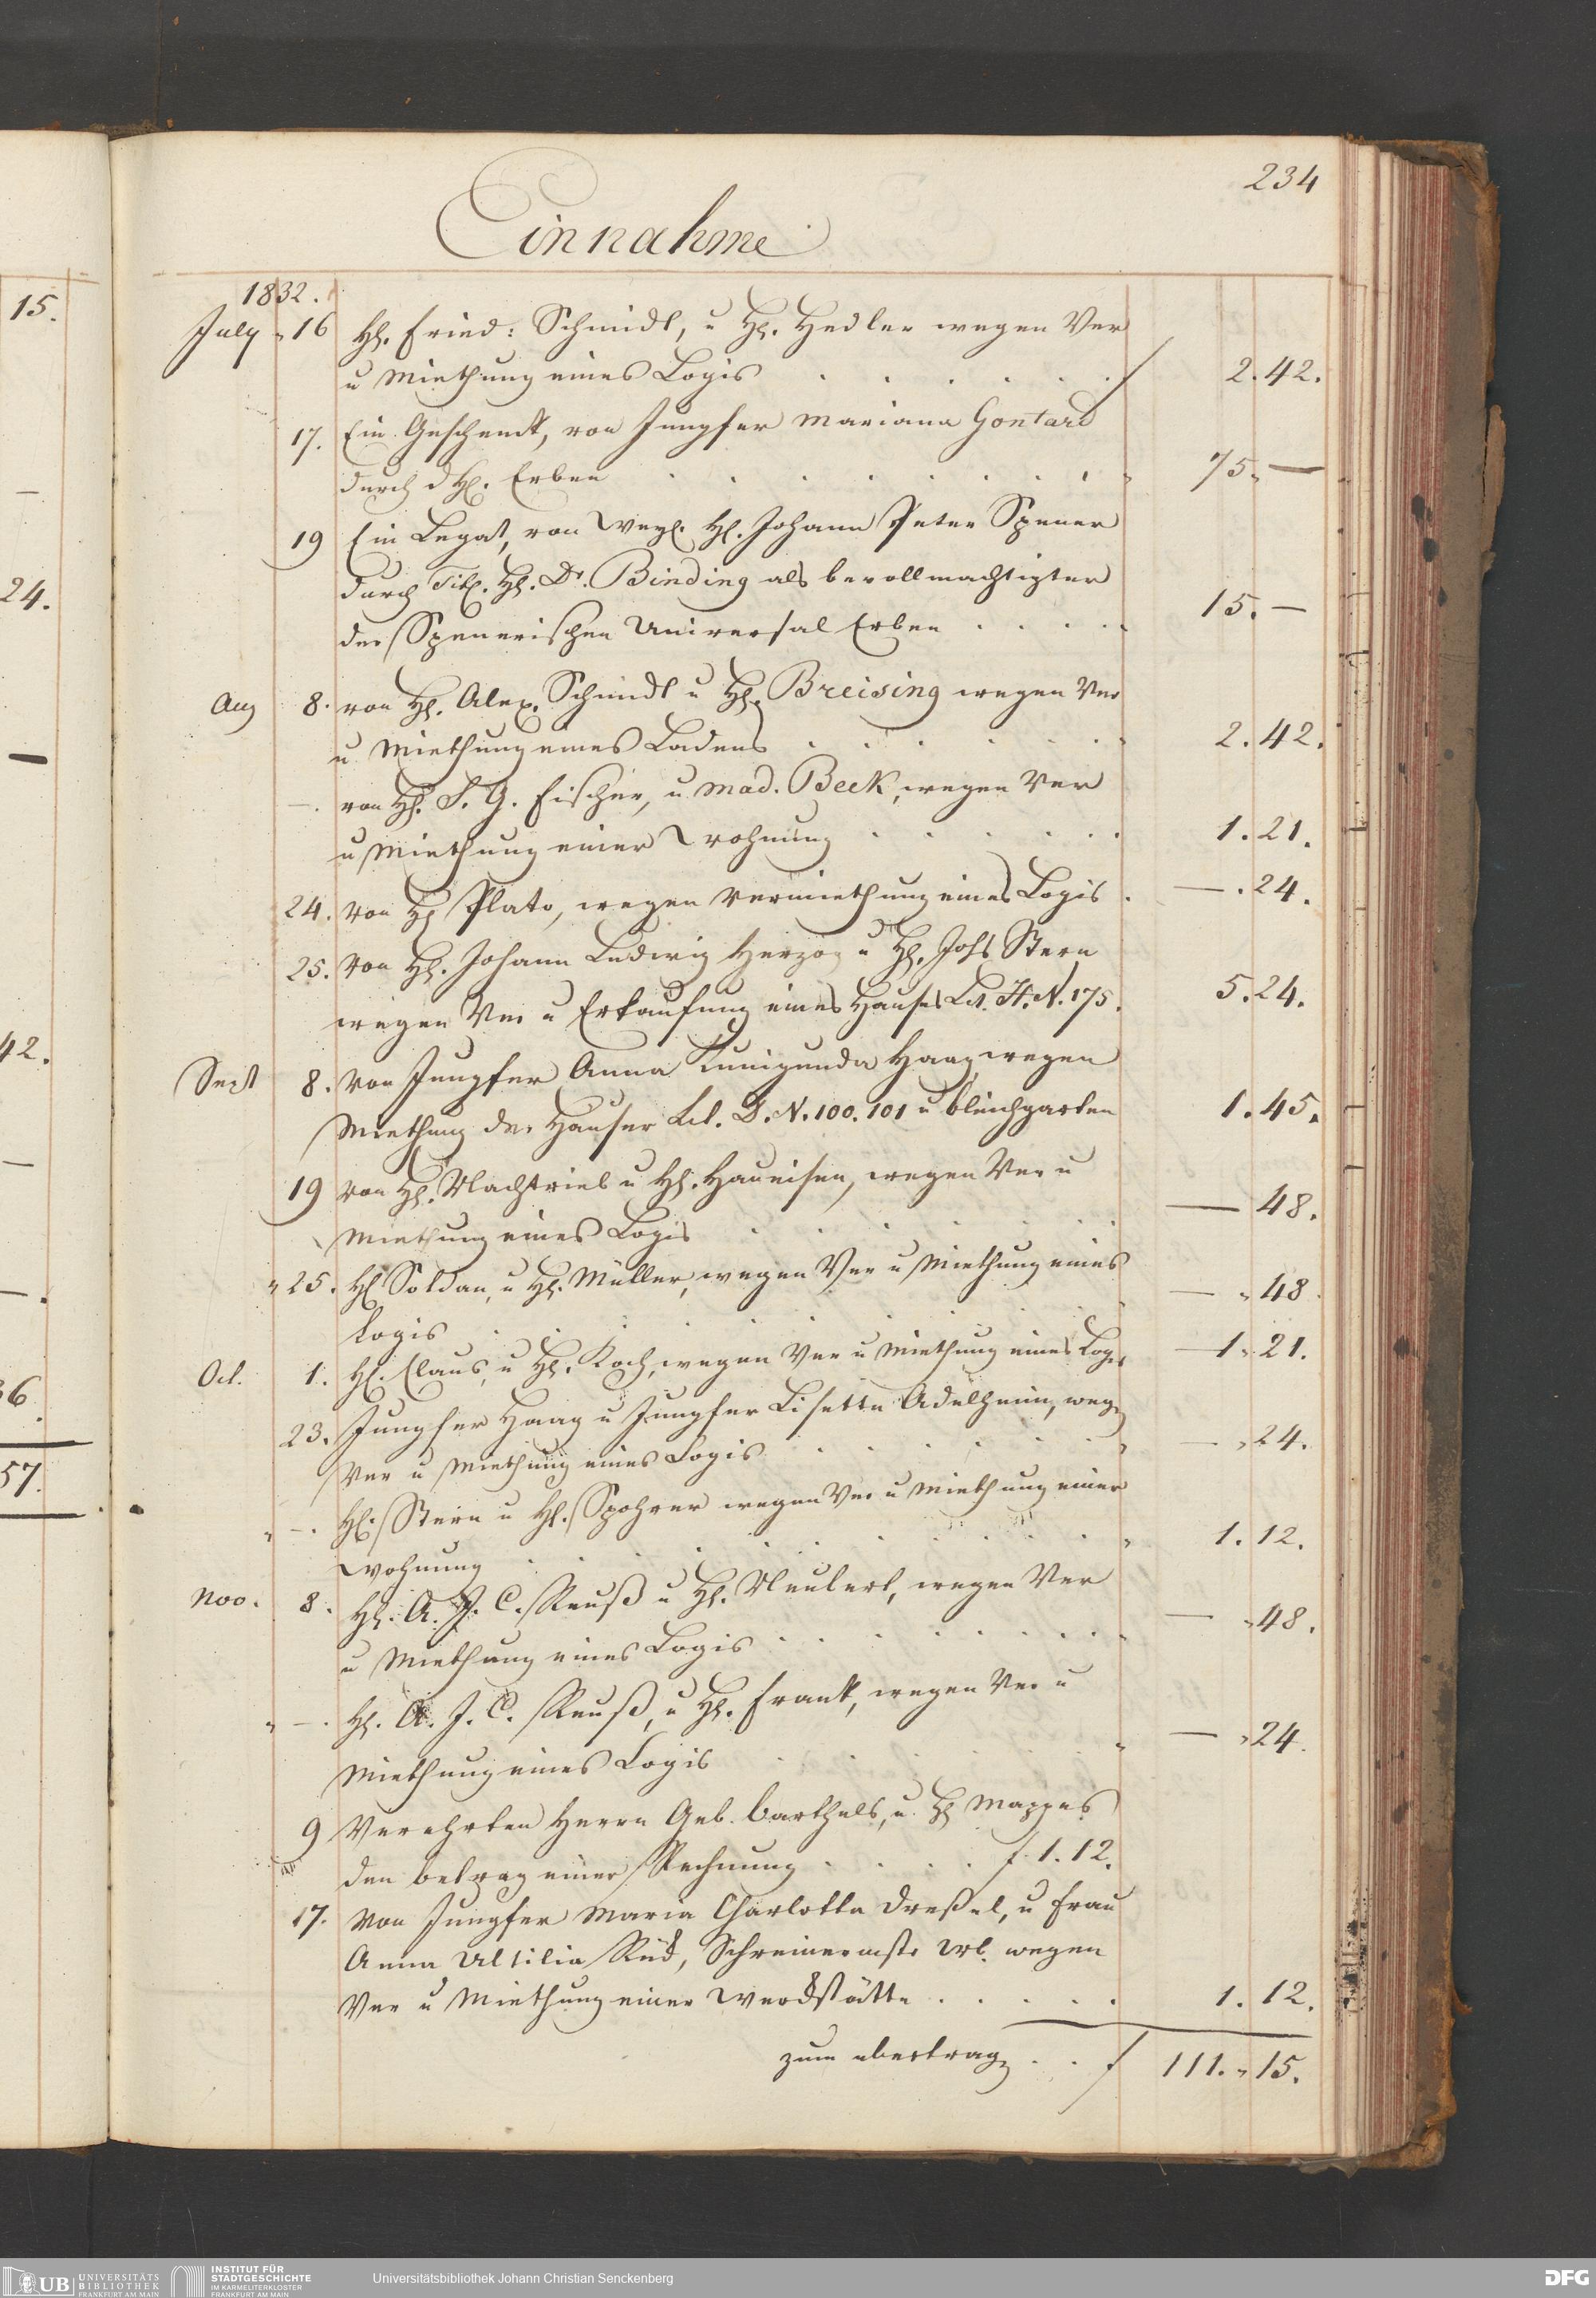 234
Einnahme
1832.
July 16 H. Fried: Schmidt, u H. Hedler wegen Ver
u Miethung eines Logis . . . . . f 2.42.
17. Ein Geschenck, von Jungfer Mariana Gontard
durch d H. Erben . . . . . . . 75. —
19 Ein Legat, von Weyl. H. Johann Peter Spener
durch Titl. H. Dr. Binding als bevollmächtigter
der Spenerischen Universal Erben . . . . 15. —
Aug 8. von H. Alex. Schmidt u H. Breising wegen Ver
u Miethung eines Ladens . . . . . . 2.42.
—. von H. S. G. Fischer, u. Mad. Beck, wegen Ver
u Miethung einer Wohnung . . . . . 1.21.
24. von H Plato, wegen Vermiethung eines Logis . — . 24.
25. von H. Johann Ludwig Herzog u H. Johs Stern
wegen Ver u Erkaufung eines Hauses Lit. H. N. 175. 5.24.
Sept 8. von Jungfer Anna Kunigunda Haag wegen
Miethung der Häuser Lit. D. N. 100. 101 u Bleichgarten 1.45.
19 von H. Nachtrieb u H. Haueisen, wegen Ver u
Miethung eines Logis . . . . . . — 48.
" 25. H Soldan, u H. Müller, wegen Ver u Miethung eines
Logis . . . . . . . — " 48.
Oct. 1. H. Claus, u H. Koch, wegen Ver u Miethung eines Logis 1 " 21.
23. Jungfer Haag u Jungfer Lisette Adelheim, wegen
Ver u Miethung eines Logis . . . . . — " 24.
" —. H. Stern u H. Spohrer wegen Ver u Miethung einer
Wohnung . . . . . . . 1. 12.
Nov. 8. H. A. J. C. Reuß u H. Neubert, wegen Ver
u Miethung eines Logis . . . . . . . — " 48.
" —. H. A. J. C. Reuß, u H. Frank, wegen Ver u
Miethung eines Logis . . . . . . — " 24.
9 Verehrten Herrn Geb. Barthels, u. H Mappes
den betrag einer Rechnung . . . . f. 1. 12.
17. von Jungfer Maria Charlotta Dreßel, u Frau
Anna Schreinermstr wegen
Ver u Miethung einer Werckstätte . . . . . 1. 12.
zum ubertrag . . f 111. " 15.
15.
24.
42.
36.
57.
UB UNIVERSITÄTS
BIBLIOTHEK
FRANKFURT AM MAIN
INSTITUT FÜR
STADTGESCHICHTE
IM KARMELITERKLOSTER
FRANKFURT AM MAIN
Universitätsbibliothek Johann Christian Senckenberg
DFG